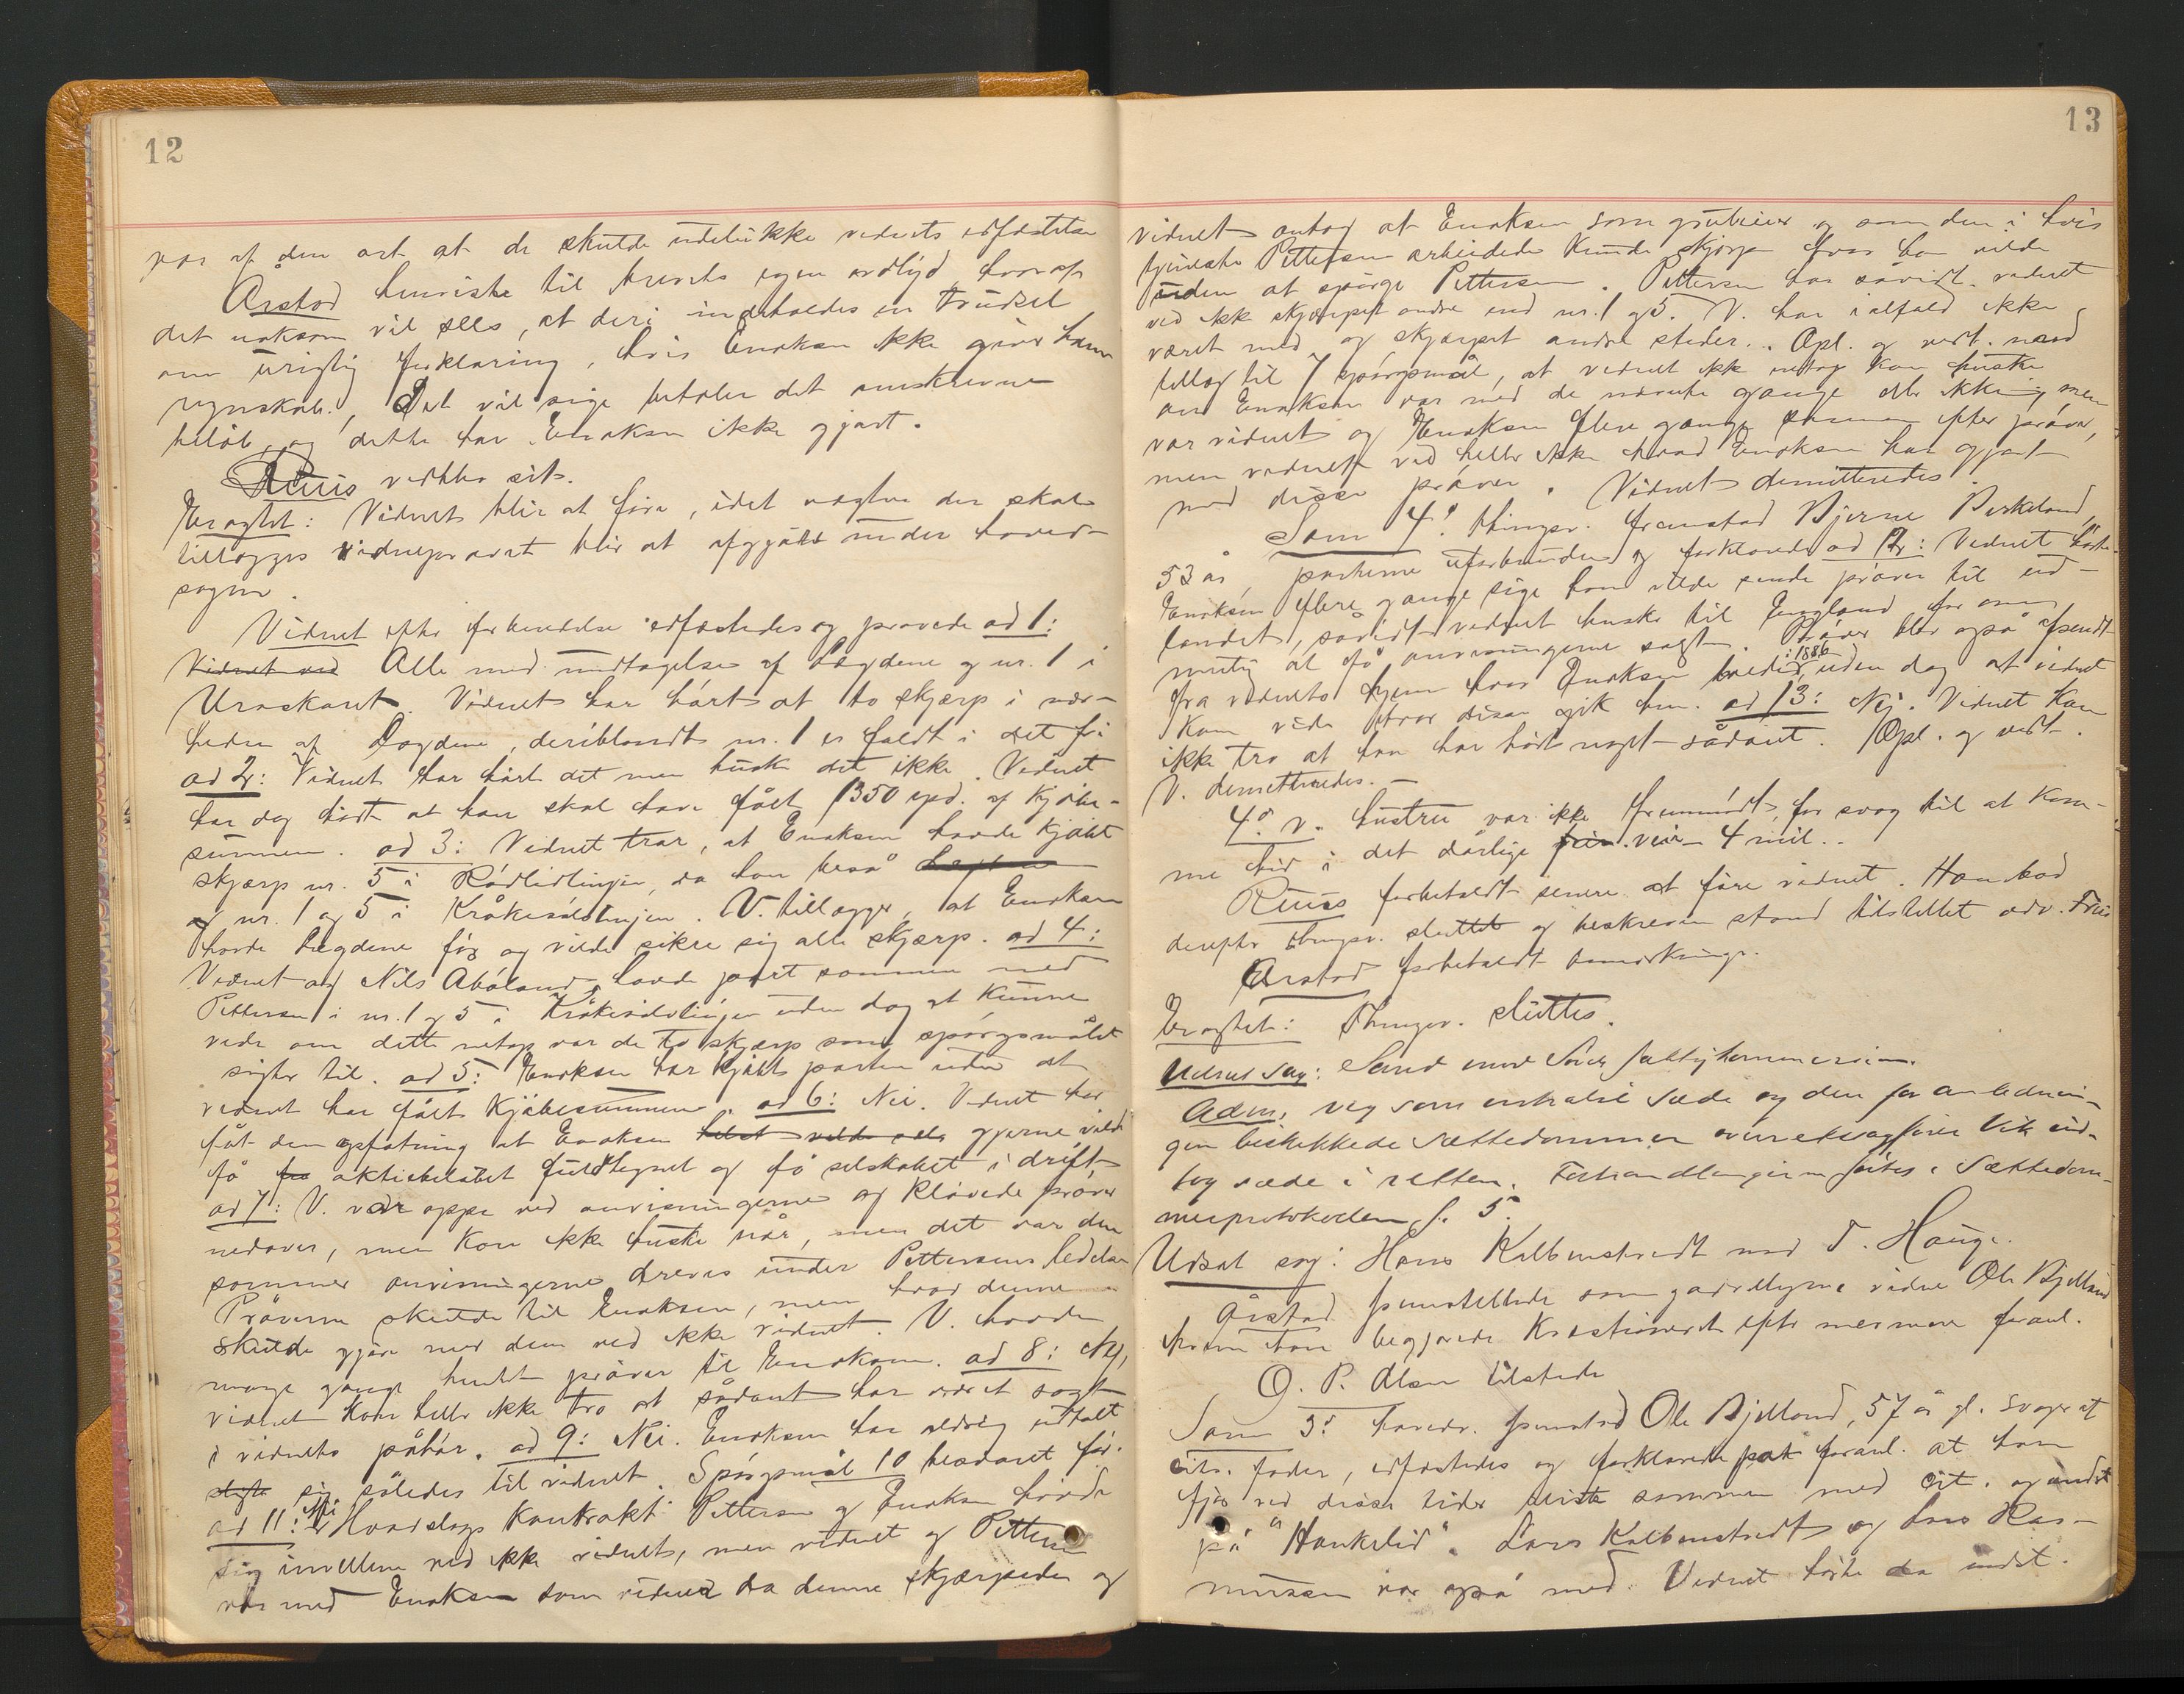 12
var af den art at de skulde udelukke vidnets edfæstelse
Årstad henviste til brevets egen ordlyd, hvoraf
det noksom vil sees, at deri indeholdes en trudsel
om urigtig forklaring, hvis Enoksen ikke gjør ham
regnskab. Det vil sige betaler det omskrevne
beløb, og dette har Enoksen ikke gjort.
Ruus vedblev sit.
Eragtet: Vidnet blir at føre, idet vægten der skal
tillægges vidneprovet blir at afgjøre under hoved-
sagen.
Vidnet efter forberedelse edfæstedes og provede ad 1:
Vidnet ved Alle med undtagelse af Løgdene og nr. 1 i
Uraskaret. Vidnet har hørt at to skjærp i nær-
heden af Løgdene, deriblandt nr. 1 er faldt i det fri
ad 2: Vidnet har hørt det men husk det ikke. Vidnet
har dog hørt at han skal have fået 1350 spd. af kjøbe-
summen. ad 3: Vidnet tror, at Enoksen havde kjøbt
skjærp nr. 5 i Rødlidlinjen, da han beså
af nr. 1 og 5 i Kråkesidlinjen. V. tillægger, at Enoksen
havde Løgdene før og vilde sikre sig alle skjærp. ad 4:
Vidnet og Nils Abøland havde part sammen med
Pettersen i nr. 1 og 5 i Kråkesidelinjen uden dog at kunne
vide om dette netop var de to skjærp som spørgsmålet
sigter til. ad 5: Enoksen har kjøbt parten uden at
vidnet har fået kjøbesummen. ad 6: Nei. Vidnet har
fåt den opfatning at Enoksen gjerne vilde
få aktiebeløbet fuldtegnet og få selskabet i drift
ad 7: V. var oppe ved anvisningerne og kløvede prøver
nedover, men kan ikke huske når, men det var den
sommer anvisningerne dreves under Pettersens ledelse
Prøverne skulde til Enoksen, men hvad denne
skulde gjøre med dem ved ikke vidnet. V. havde
mange gange hentet prøver til Enoksen. ad 8: Nej,
vidnet kan heller ikke tro at sådant har været sagt
i vidnets påhør. ad 9: Nei. Enoksen har aldrig uttalt
sig således til vidnet. Spørgsmål 10 besvaret før.
ad 11: Nei Hvadslags kontrakt Pettersen og Enoksen havde
sig imellem ved ikke vidnet, men vidnet og Pettersen
var med Enoksen som vidner da denne skjærpede og
13
vidnet antog at Enoksen som grubeeier og som den i hvis
tjeneste Pettersen arbeidede kunde skjærpe hvor han vilde
uden at spørge Pettersen. Pettersen har såvidt vidnet
ved ikk skjærpet andre end nr. 1 og 5. V. har ialfald ikke
været med og skjærpet andre steder. Opl. og vedt. med
tillæg til 7 spørgsmål, at vidnet ikk netop kan huske
om Enoksen var med de nævnte gange eller ikke, men
var vidnet og Enoksen flere gange sammen efter prøver,
men vidnet ved heller ikke hvad Enoksen har gjort
med disse prøver. Vidnet demitteredes.
Som 4de thingsv. fremstod Bjerne Birkeland,
53 år, parterne uforbunden og forklarede ad 12: Vidnet hørte
Enoksen flere gange sige han vilde sende prøver til ud-
landet, såvidt vidnet husker til England for om
mulig at få anvisningerne solgt. Prøver blev også afsendt
fra vidnets hjem hvor Enoksen boede i 1886, uden dog at vidnet
kan vide hvor disse gik hen. ad 13: Nej. Vidnet kan
ikke tro at han har hørt noget sådant. Opl. og vedt.
V. demitteredes. –
4de v. hustru var ikke fremmødt, for svag til at kom-
me hid i det dårlige veir 4 mil..
Ruus forbeholdt senere at føre vidnet. Han bad
derefter thingsv. sluttet og beskreven stand tilstillet adv. Friis
Årstad forbeholdt bemærkninger.
Eragtet: Thingsv. sluttes.
Udsat sag: Sand mod Fattigkommission.
Adm. veg som inhabil sæde og den for anlednin-
gen beskikkede sættedommer overretssagfører Vik ind-
tog sæde i retten. Forhandlingerne førtes i sættedom-
merprotokollen f. 5.
Udsat sag: Hans Kalbenstvedt mod T. Hauge.
Årstad fremstillede som gjadvillgens vidne Ole Bjelland
hvem han begjærede konstitueret efter nærmere foranl.
O. P. Olsen tilstede
Som 3de hovedv. fremstod Ole Bjelland, 57 år gl. svoger af
cits. fader, edfæstedes og forklarede på foranl. at han
før ved disse tider reiste sammen med cit. og andre
på "Haukelid". Lars Kalbenstvedt og Lars Ras-
mussen var også med. Vidnet hørte da indst.